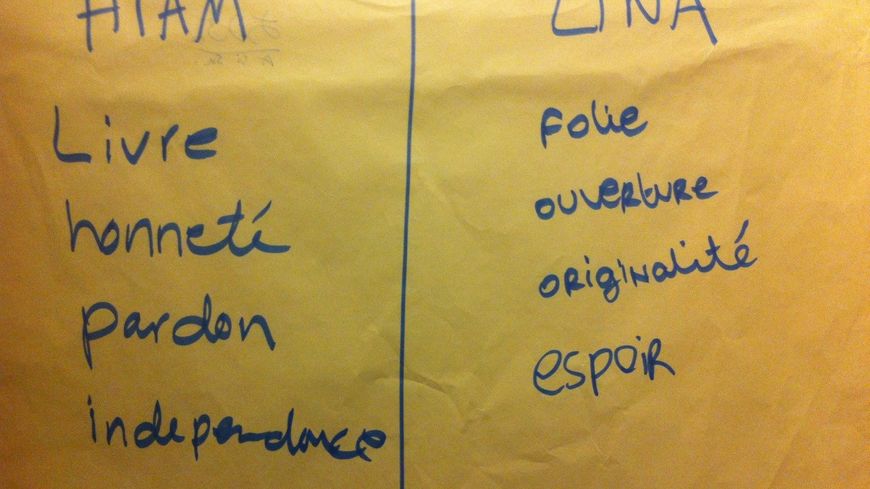 HIAM
Livre
honneté
pardon
independance
LINA
Folie
ouverture
originalité
espoir